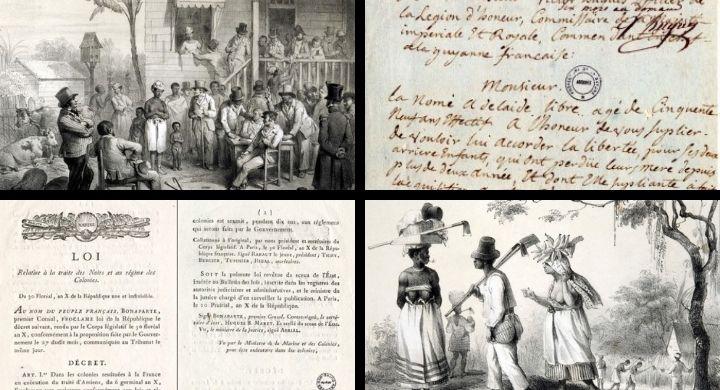 la Legion d'honeur, Commissaire de sa
imperiale Et Royale, Commendant
a la guyanne francaise:
Monsieur
la Nomé Adelaide libre agé de Cinquente
Neuf ans Effectif A l'honeur de vous suplier
de vouloir lui accorder la liberté, pour ses deux
arriere Enfants, qui ont perdue leur mere depuis
plus de deux année, Et dont Elle supliante a
LOI
Relative à la traite des Noirs et au régime des
Colonies.
Du 30 Floréal, an X de la République une et indivisible.
AU NOM DU PEUPLE FRANÇAIS, BONAPARTE,
premier Consul, PROCLAME loi de la République le
décret suivant, rendu par le Corps législatif le 30 floréal
an X, conformément à la proposition faite par le Gouver-
nement le 27 dudit mois, communiquée au Tribunat le
même jour.
DÉCRET.
ART. I.er Dans les colonies restituées à la France
en exécution du traité d'Amiens, du 6 germinal an X,
(2)
colonies est soumis, pendant dix ans, aux réglemens
qui seront faits par le Gouvernement.
Collationné à l'original, par nous président et secrétaires du
Corps législatif. A Paris, le 30 Floréal, an X de la Répu-
blique française. Signé RABAUT le jeune, président;
secrétaires.
SOIT la présente loi revêtue du sceau de l'État,
insérée au Bulletin des lois, inscrite dans les registres des
autorités judiciaires et administratives, et le ministre
de la justice chargé d'en surveiller la publication. A Paris,
le 10 Prairial, an X de la République.
Signé BONAPARTE, premier Consul. Contresigné, le secré-
taire d'état, HUGUES B. MARET. Et scellé du sceau de l'État.
Vu, le ministre de la justice, signé ABRIAL.
Vu par le Ministre de la Marine et des Colonies,
pour être exécutée dans les colonies,